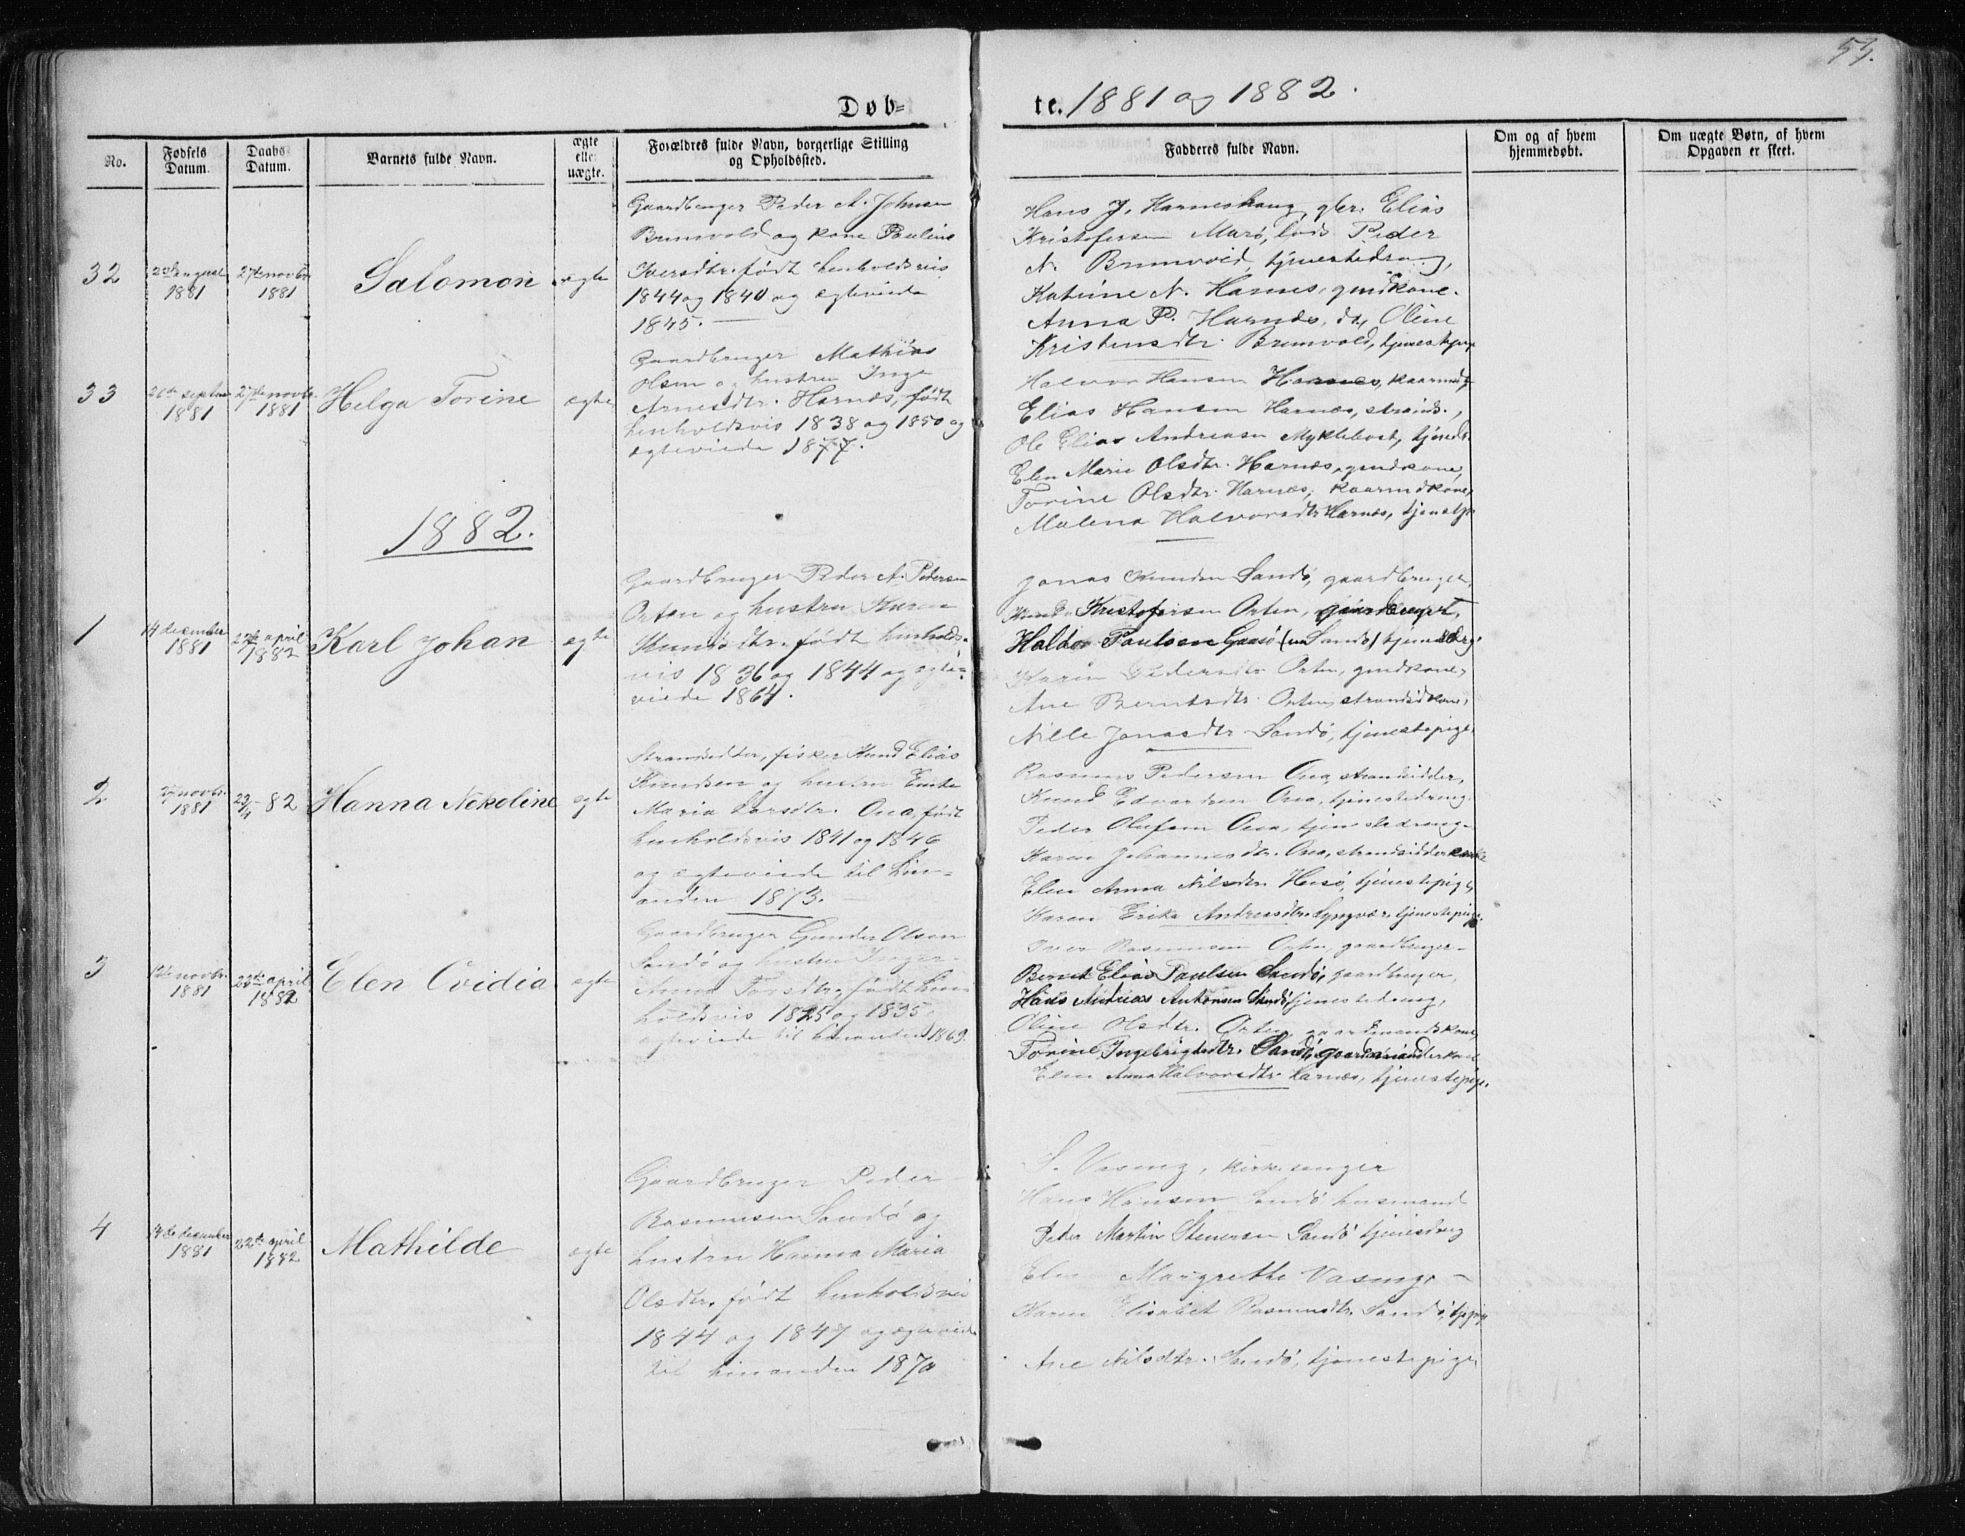 53.
Døb-
te. 1881 og 1882.
No.
Fødsels Datum.
Daabs Datum.
Barnets fulde Navn.
ægte eller uægte.
Forældres fulde Navn, borgerlige Stilling og Opholdssted.
Fadderes fulde Navn.
Om og af hvem hjemmedøbt.
Om uægte Børn, af hvem Opgaven er skeet.
32
august
1881
27de novbr.
1881
Salomon
ægte
Gaardbruger Peder A. Johnsen
Brunvold og kone Pauline
Iversdtr. født henholdsvis
1844 og 1840 og ægteviede
1845.
Hans J. Harneshaug, gbr. Elias
Kristofersen Marø, lods Peder
N. Brunvold, tjenestedreng,
Katrine N. Harnes, gmdkone.
Anna P. Harnes, do, Oline
Kristensdtr. Brunvold, tjenestepige
33
26de septbr
1881
27de novbr.
1881
Helga Torine
ægte
Gaardbruger Mathias
Olsen og hustru Inge
Arnesdtr. Harnæs, født
henholdsvis 1838 og 1850 og
ægteviede 1877.
Halvor Hansen Harnes, kaarmd,
Elias Hansen Harnæs, strands.,
Ole Elias Andreasen Myklebost, tjenedr.
Elen Marie Olsdtr. Harnæs, gmdkone,
Torine Olsdtr. Harnæs, kaarmdkone,
Malena Halvorsdtr Harnæs, tjenestp.
1882.
1
14 december
1881
april
1882
Karl Johan
ægte
Gaardbruger Peder A. Pedersen
Orten og hustru Karen
Knudsdtr. født henholds-
vis 1836 og 1844 og ægte-
viede 1864.
Jonas Knudsen Sandø, gaardbruger,
Knud Kristofersen Orten, gaardbruger,
Haldor Paulsen Gaasø (nu Sandø) tjenesdrg.
Karen Pedersdtr Orten, gmdkone,
Ane Berntsdtr. Orten, strandsidkone,
Nille Jonasdtr Sandø, tjenestepige.
2
novbr.
1881
23/4 - 82
Hanna Nekoline
ægte
Strandsidder, fisker Knud Elias
Knudsen og hustru Emte
Maria Larsdtr. Ona, født
henholdsvis 1841 og 1846
og ægteviede til hin-
anden 1873.
Rasmus Pedersen Ona, strandsidder,
Knud Edvardsen Ona, tjenestedreng
Peder Olufsen Ona, tjenestedreng-
Karen Johannesdtr. Ona, strandsidderkone
Elen Anna Nilsdtr. Husø, tjenestepige,
Karen Erika Andreasdtr. Lyngvær, tjenestepige.
3
12te novbr.
1881
23de april
1882
Elen Ovidia
ægte
Gaardbruger Gunder Olsen
Sandø og hustru Inger-
Anna Torsdtr, født hen-
holdsvis 1825 og 1835,
ægteviede til hinanden 1869.
Iver Rasmussen Orten, gaardbruger-
Bernt Elias Paulsen Sandø, gaardbruger,
Hans Andreas Antonsen Sandø, tjenestedreng,
Oline Olsdtr. Orten, gaardmandskone,
Torine Ingebrigtsdtr. Sandø, gaardmandskone
Elen Anna Halvorsdtr Harnæs, tjenestepige.
4
14de december
1881
22de april
1882
Mathilde
ægte
Gaardbruger Peder
Rasmussen Sandø og
hustru Hanna Maria
Olsdtr. født henholdsvis
1844 og 1847 og ægteviede
til hinanden 1870
S. Vasmg, kirkesanger
Hans Hansen Sandø husmand
Peder Martin Stenersen Sandø tjenesdreng
Elen Margrethe Vasmg. -
Karen Elisabet Rasmusdtr. Sandø, tjpige
Ane Nilsdtr. Sandø, tjenestepige